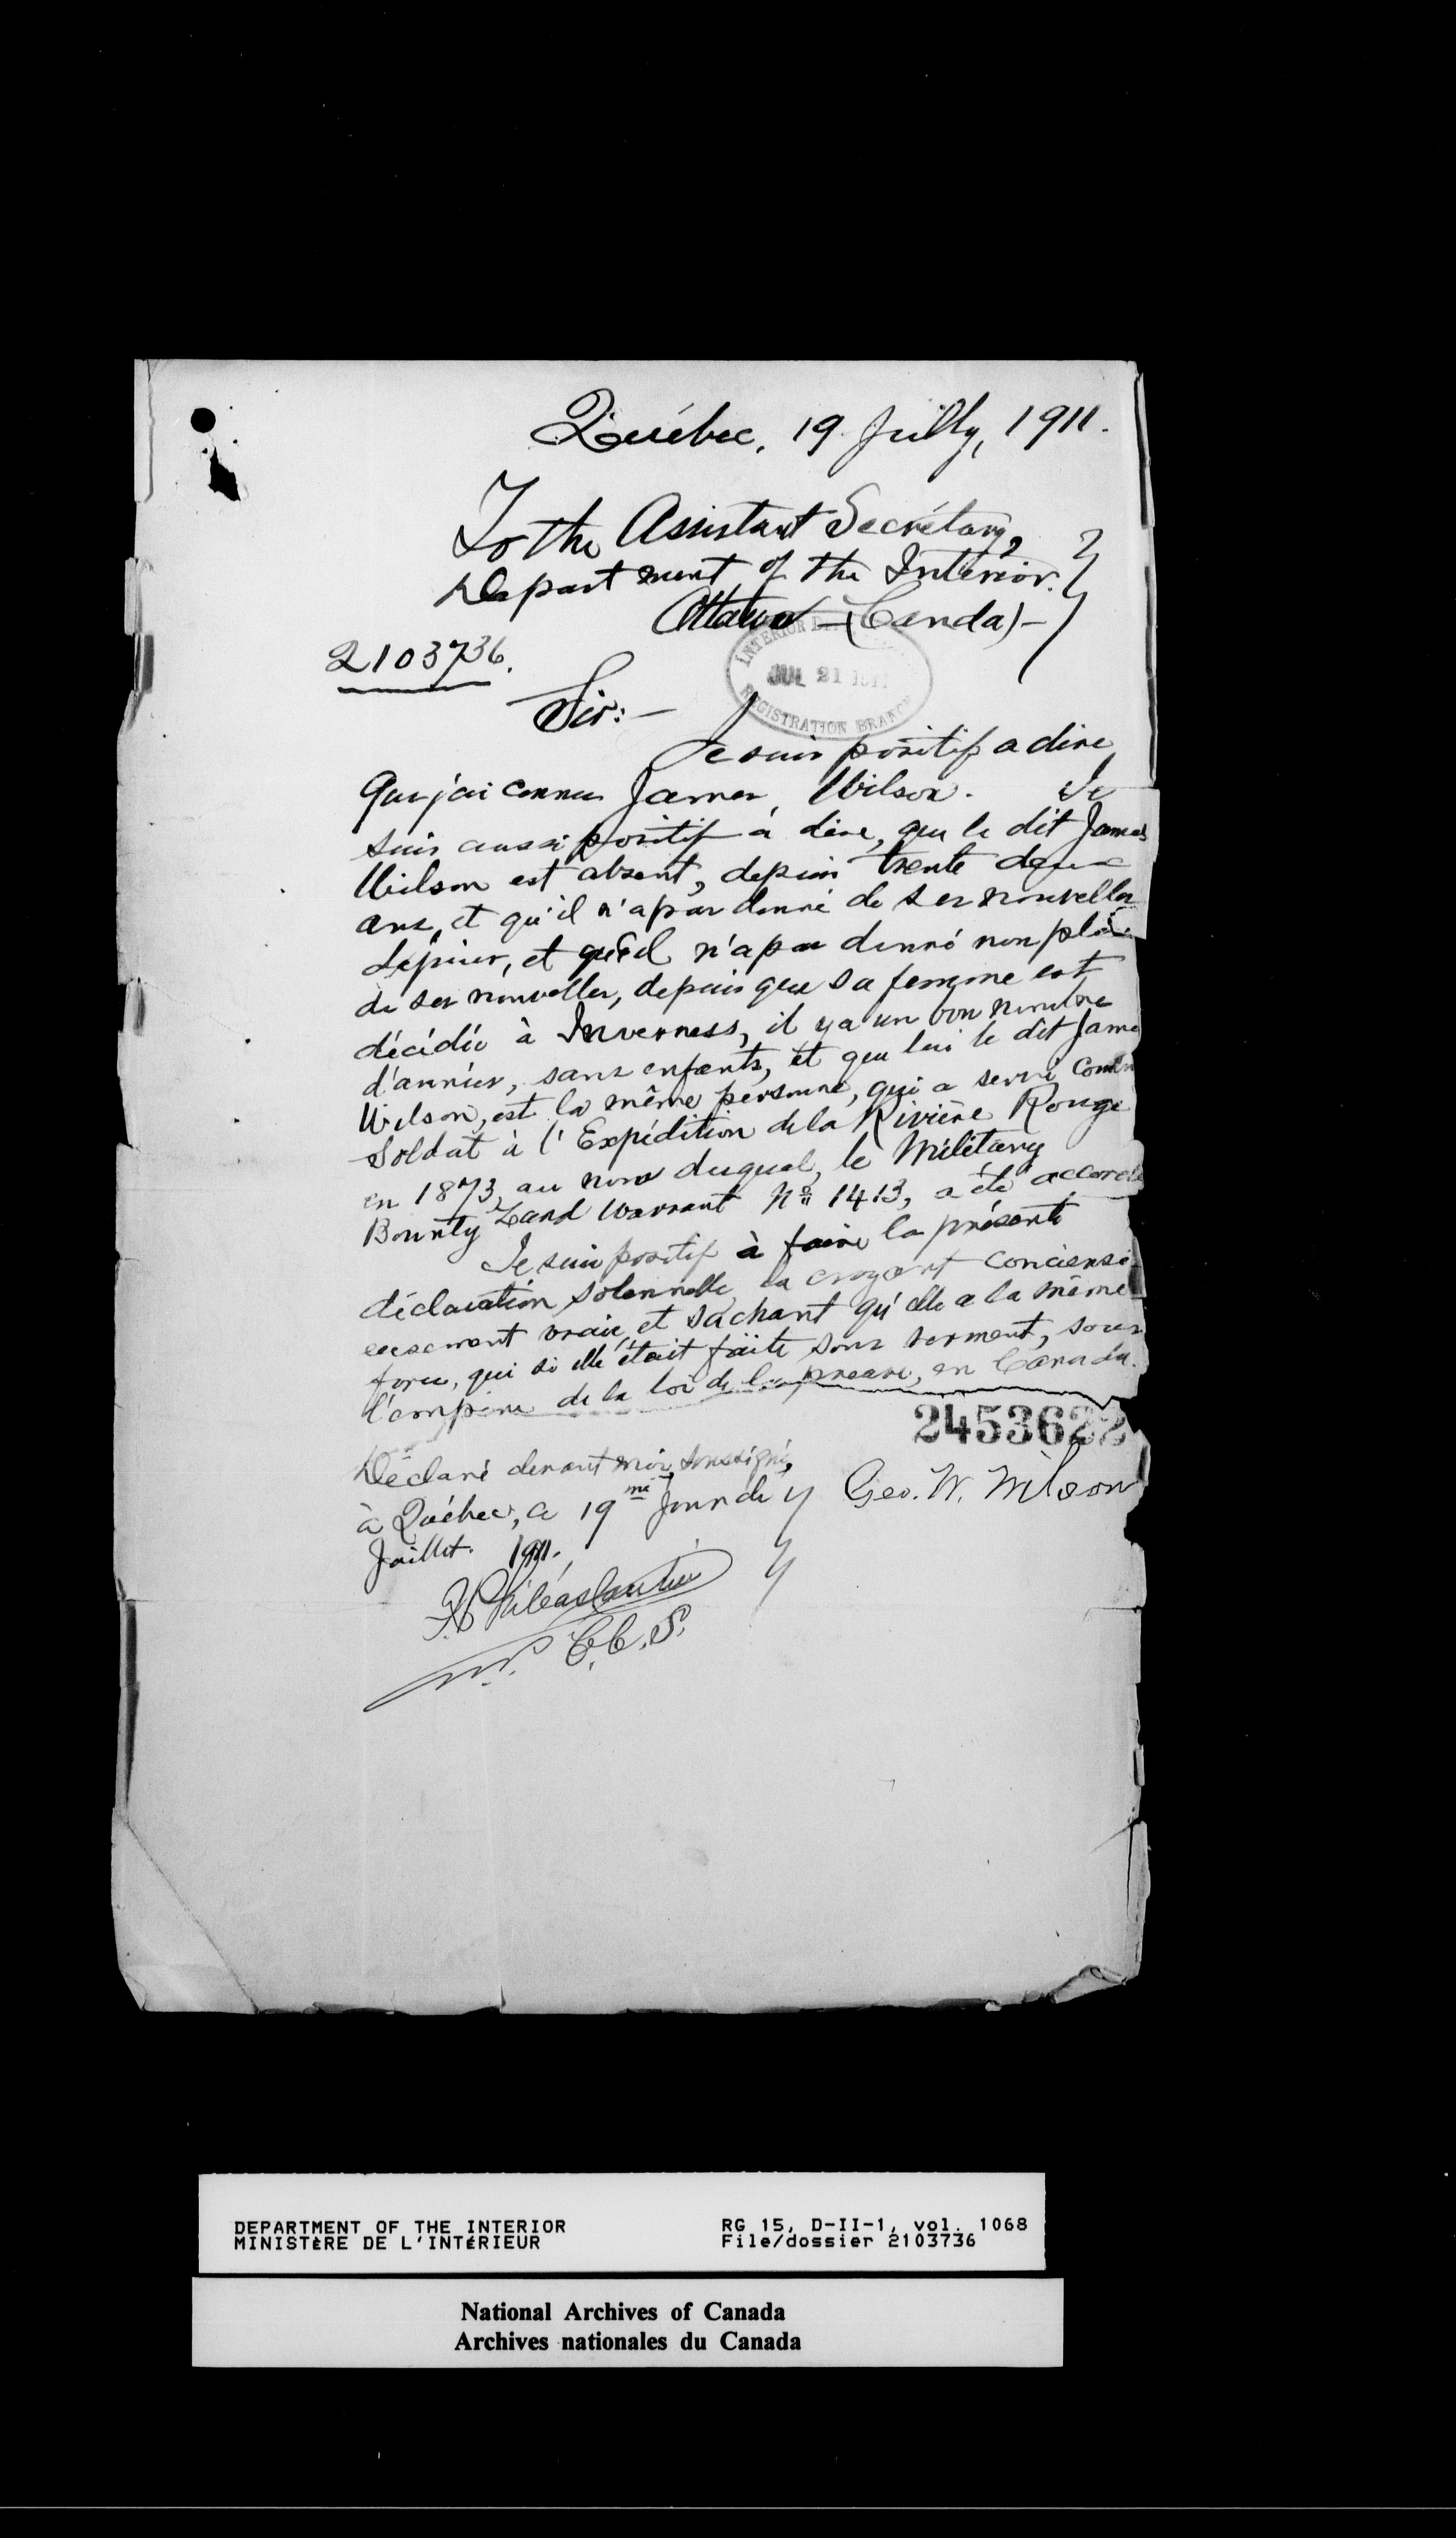 Québec, 19 Jully, 1911.
To the Assistant Secrétary,
Depart ment of the Interior.
Ottawa — (Canda) —
2103736.
INTERIOR
JUL 21 1911
REGISTRATION BRANCH
Sir: —
Je suis positif a dire
Que j'ai connu James Wilson. Je
suis aussi positif à dire, que le dit James
Wilson est absent, depuis trente deux
ans, et qu'il n'a pas donné de ses nouvelles
depuis, et qu'il n'a pas donné non plus
de ses nouvelles, depuis que sa femme est
décédée à Inverness, il y a un bon nombre
d'années, sans enfants, et que lui le dit James
Wilson, est la même personne, qui a servi comme
soldat à l'Expédition de la Rivière Rouge
en 1873, au nom duquel, le Military
Bounty Land Warrant No 1413, a été accordé
Je suis positif à faire la présente
déclaration solennelle, la croyant consciensi-
eusement vraie, et sachant qu'elle a la même
force, que si elle était faite sous serment, sous
l'empire de la loi de la preuve, en Canada.
2453622
Déclaré devant moi, soussigné,
à Québec, ce 19me Jour de
Juillet. 1911.
Geo. W. Wilson
C.C.S.
DEPARTMENT OF THE INTERIOR
MINISTÈRE DE L'INTÉRIEUR
RG 15, D-II-1, vol. 1068
File/dossier 2103736
National Archives of Canada
Archives nationales du Canada